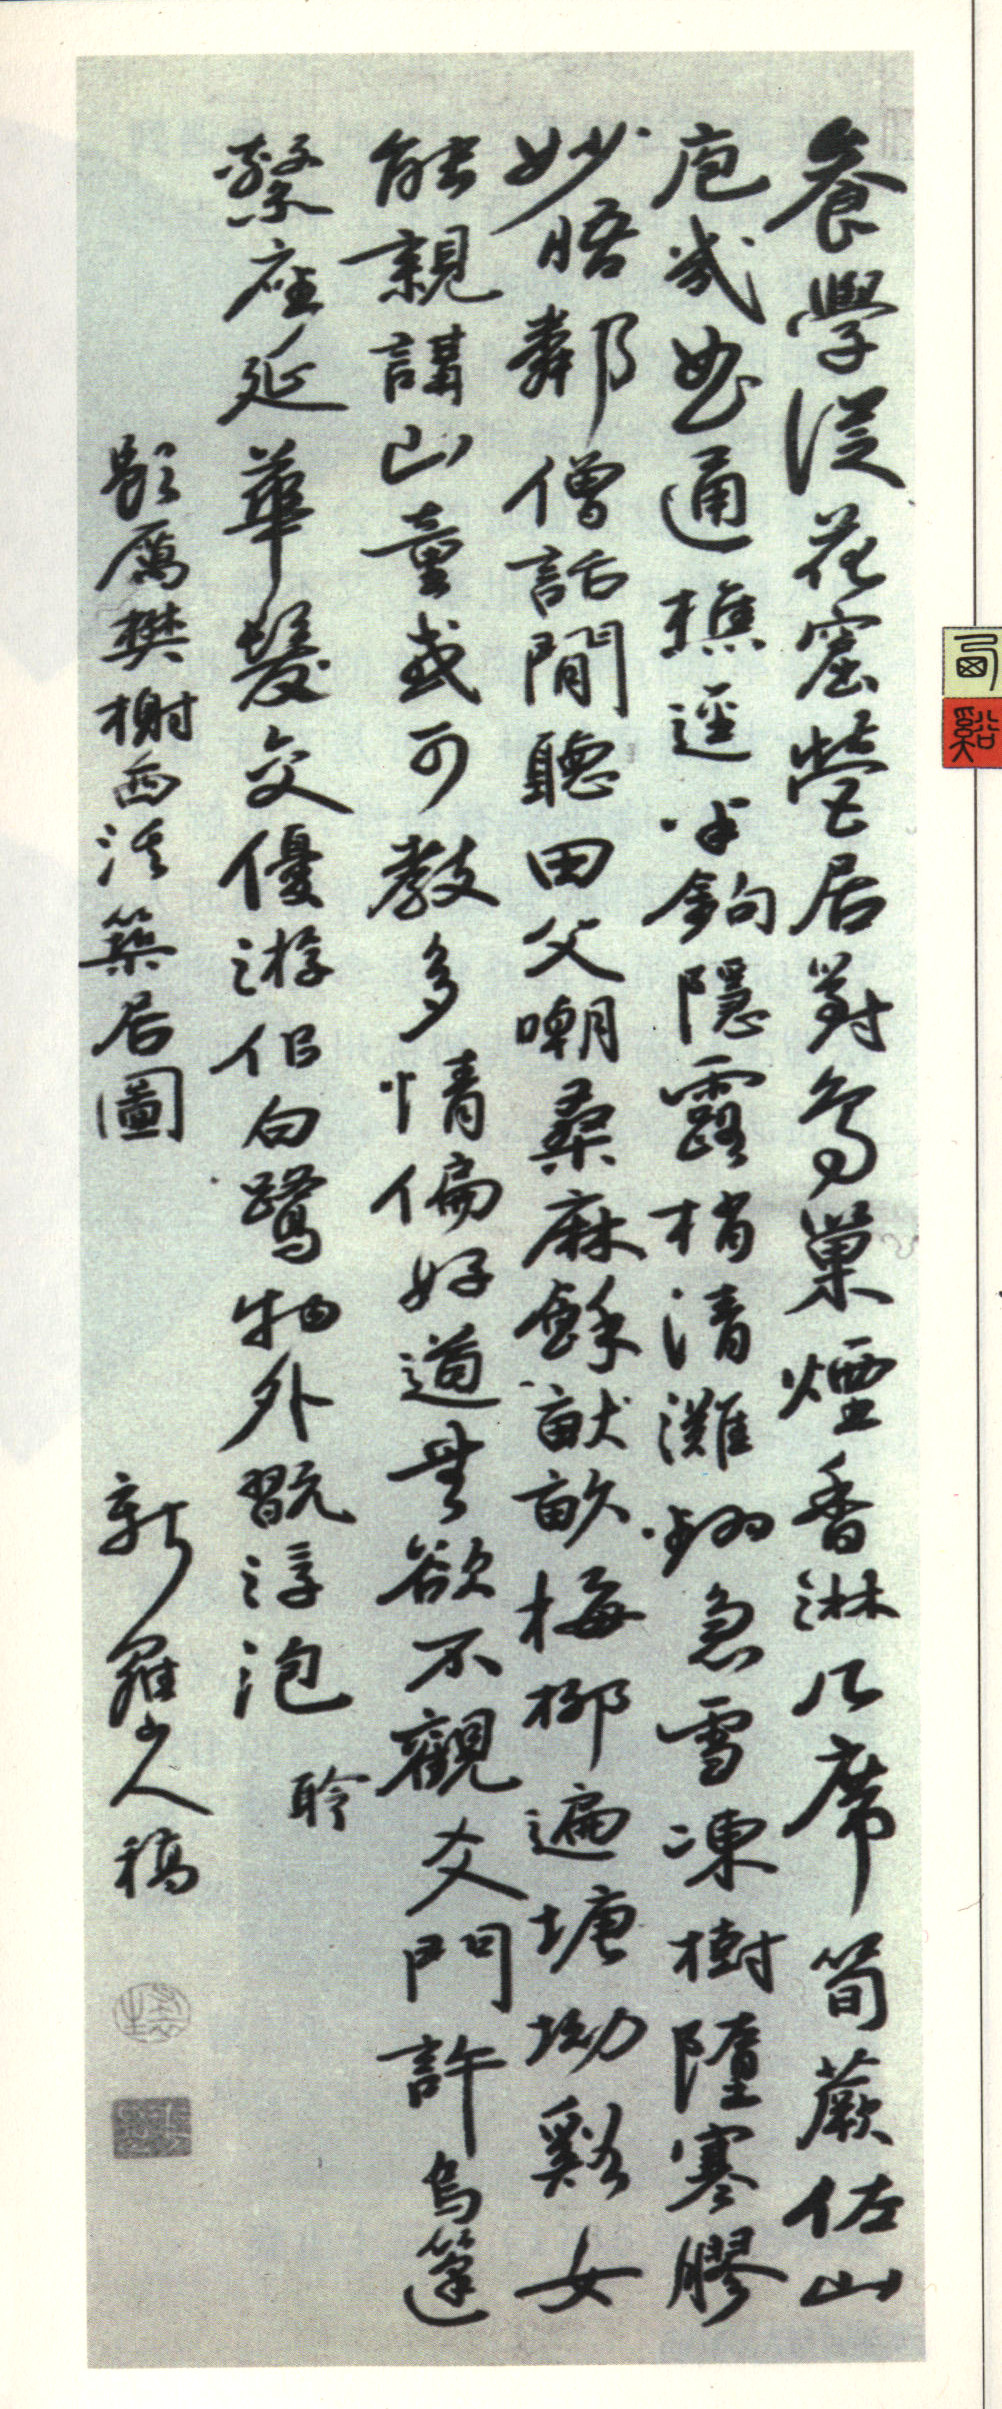 養學從花窟營居對鳥巢煙香淋几席筍蕨佐山
庖幾曲通樵逕半鉤隱露梢清灘翻急雪凍樹墮寒膠
妙悟鄰僧話閒聽田父嘲桑麻餘畝畝梅柳遍塘坳谿女
能親講山童或可教多情偏好道無欲不觀爻門許烏篷
繫座延華髮交優游侶白鷺物外翫浮泡
聆
題厲樊榭西溪築居圖
新羅山人稿
西谿